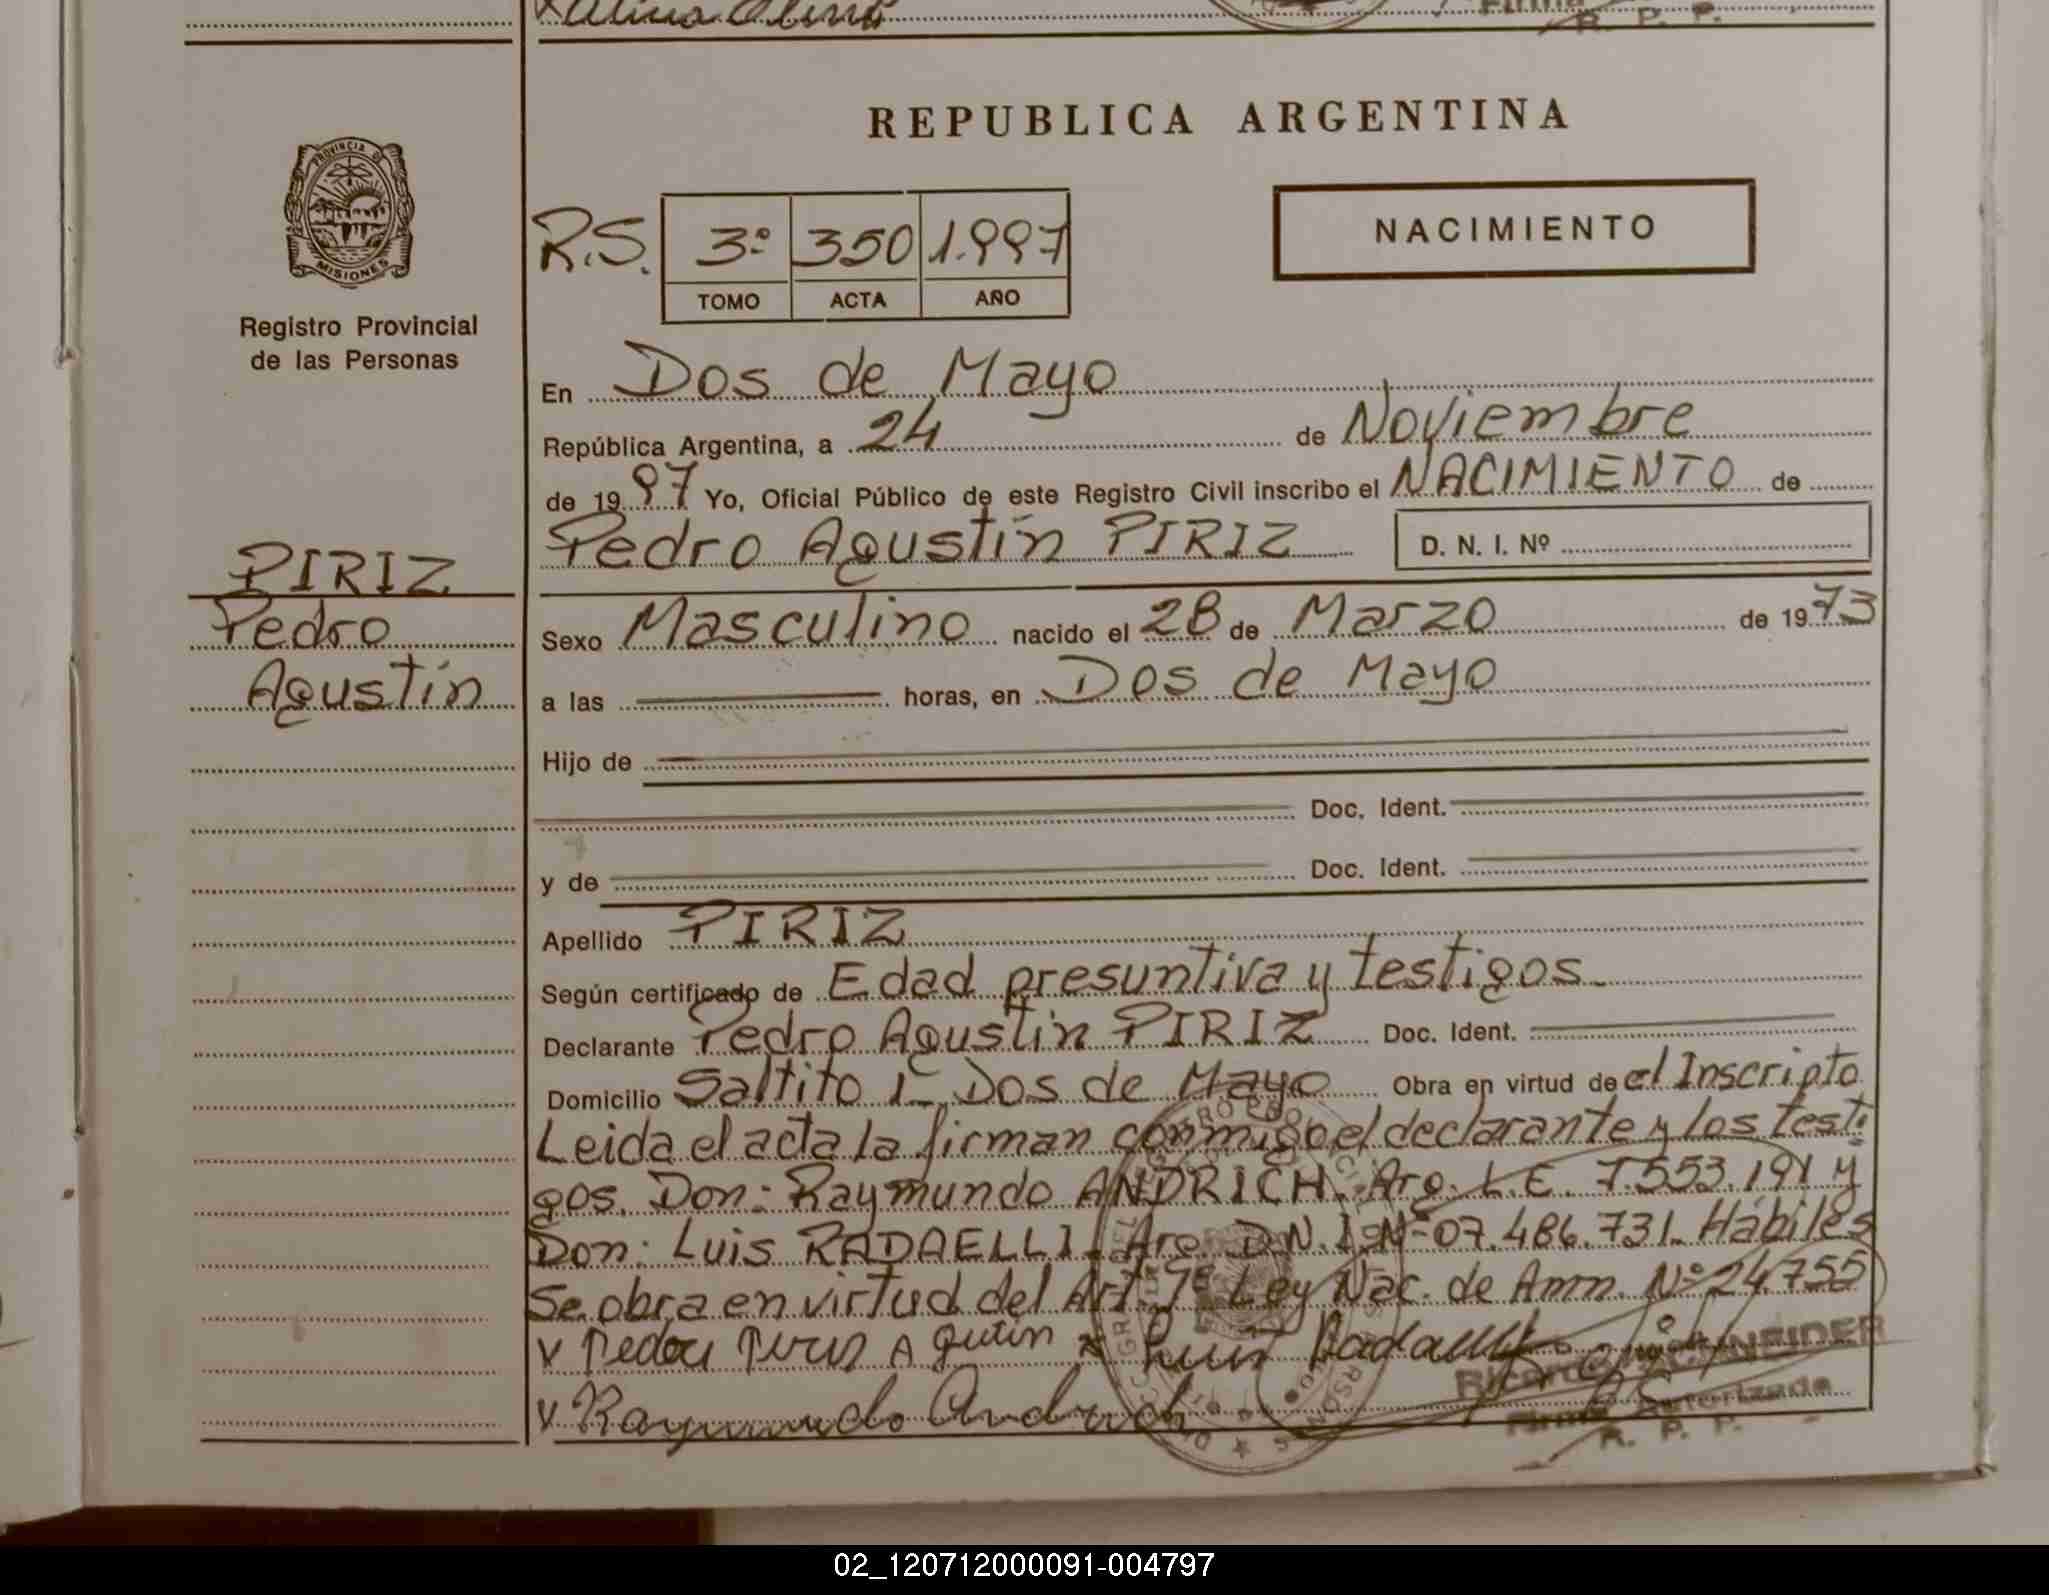 Firma
R. P. P.
REPUBLICA ARGENTINA
PROVINCIA DE
MISIONES
Registro Provincial
de las Personas
R.S. 3º 350 1.997
TOMO ACTA AÑO
NACIMIENTO
En Dos de Mayo
República Argentina, a 24 de Noviembre
de 1997 Yo, Oficial Público de este Registro Civil inscribo el NACIMIENTO de
Pedro Agustín PIRIZ D. N. I. Nº
PIRIZ
Pedro
Agustín
Sexo Masculino nacido el 28 de Marzo de 1973
a las horas, en Dos de Mayo
Hijo de
Doc. Ident.
y de Doc. Ident.
Apellido PIRIZ
Según certificado de Edad presuntiva y testigos.
Declarante Pedro Agustín PIRIZ Doc. Ident.
Domicilio Saltito 1- Dos de Mayo Obra en virtud de el Inscripto
Leida el acta la firman conmigo el declarante y los testi
gos. Don: Raymundo ANDRICH. Arg. L.E. 7.553.191 y
Don: Luis RADAELLI. Arg. D.N.I. Nº 07.486.731. Hábiles
Se obra en virtud del Art. 7º Ley Nac. de Amn. Nº 24.755
x Luis Radaelli
Ricardo SCHNEIDER
x Raymundo Andrich
Firma Autorizada
R. P. P.
02_120712000091-004797